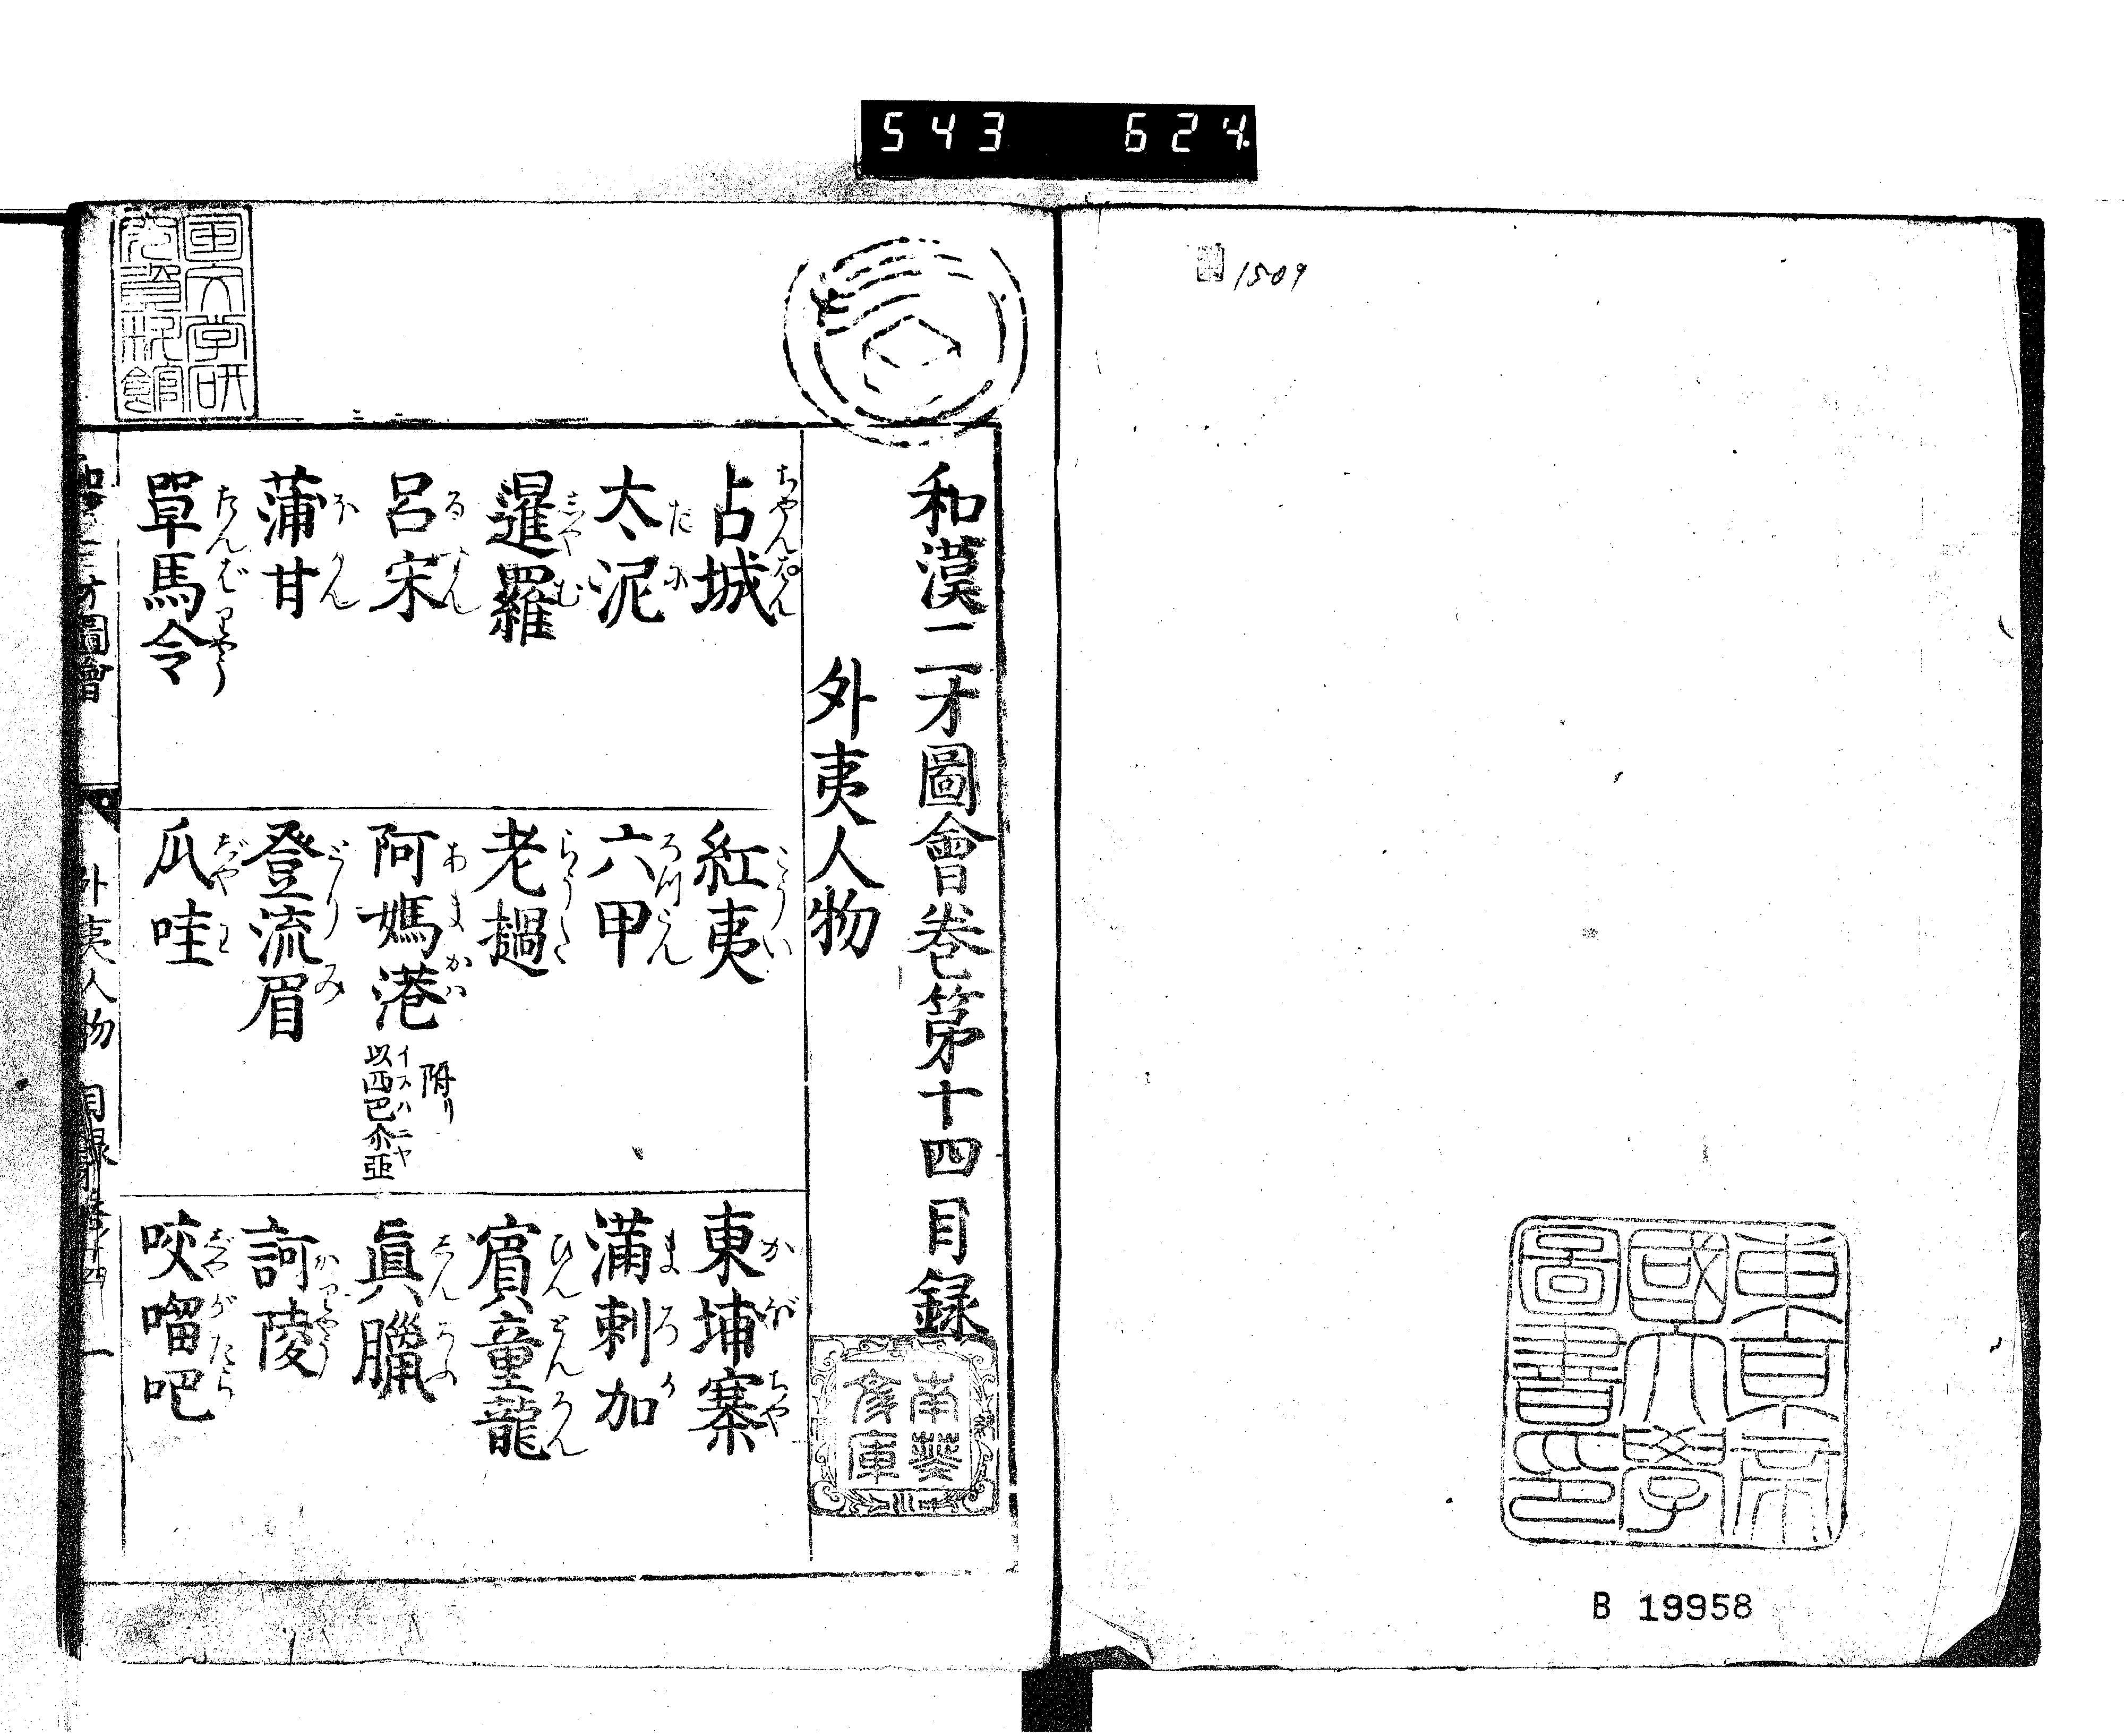 543 624
1509
東京帝
國大學
圖書印
B 19958
和漢三才圖會卷第十四目録
南葵
文庫
外夷人物
占城 ちやんぱん
太泥 だに
暹羅 しやむ
呂宋 るすん
蒲甘 ほかん
單馬令 たんばりやう
紅夷 こうい
六甲 ろつこん
老撾 らうくわ
阿媽港 あまかハ 附リ 以西巴尓亞 イスハニヤ
登流眉 とりみ
瓜哇 じやわ
東埔寨 かぼちや
滿剌加 まろか
賓童龍 ひんとんろん
眞臘 しんらふ
訶陵 かりやう
咬𠺕吧 じやがたら
和漢三才圖會 外夷人物 目録 卷十四 一
国文学研
究資料館